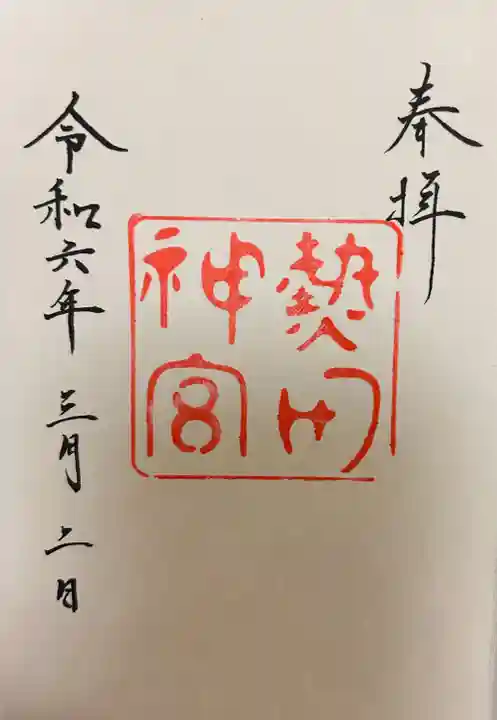 奉拝
熱田
神宮
令和六年 三月二日